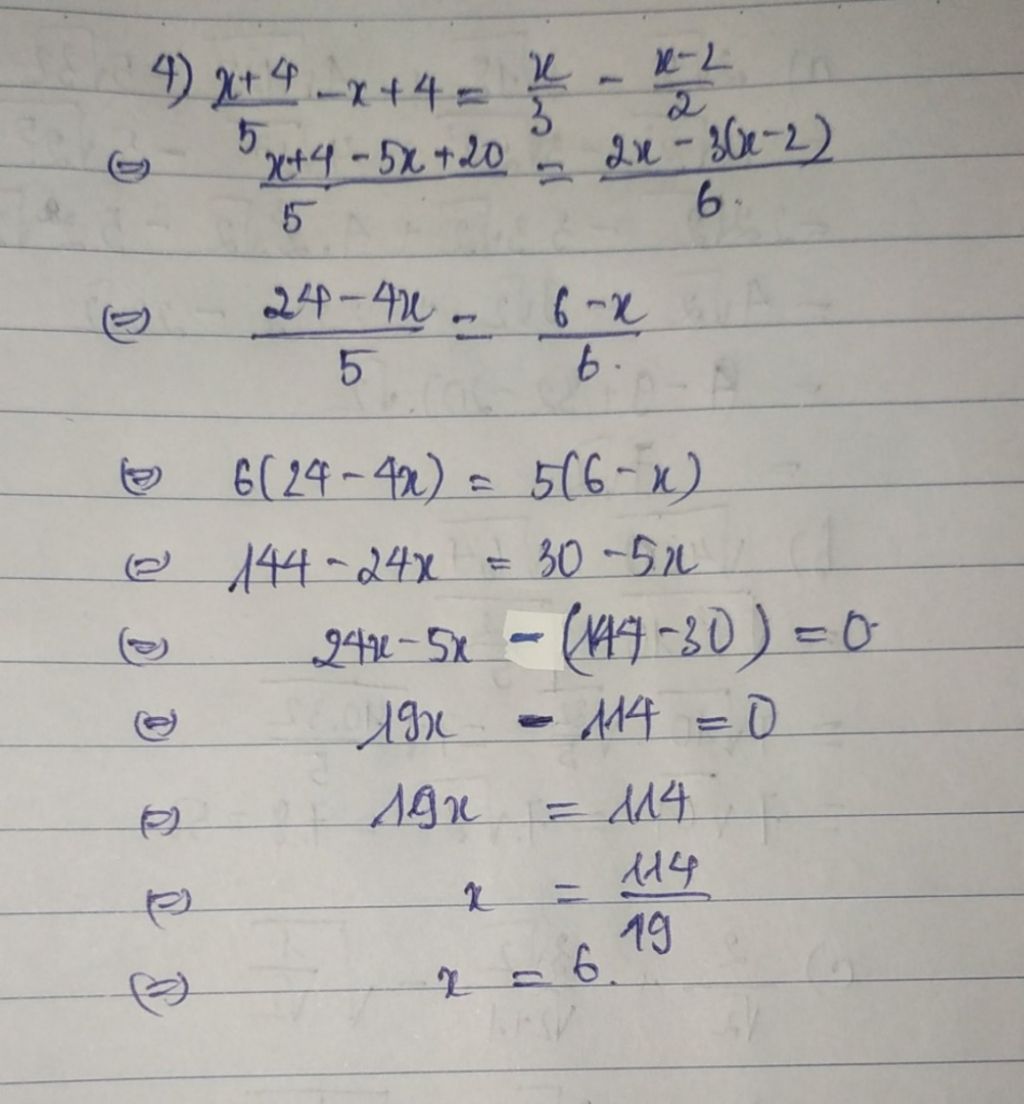 4) \frac{x+4}{5} - x + 4 = \frac{x}{3} - \frac{x-2}{2}
⇔ \frac{x+4-5x+20}{5} = \frac{2x-3(x-2)}{6}.
⇔ \frac{24-4x}{5} = \frac{6-x}{6}.
⇔ 6(24-4x) = 5(6-x)
⇔ 144-24x = 30-5x
⇔ 24x-5x - (144-30) = 0
⇔ 19x - 114 = 0
⇔ 19x = 114
⇔ x = \frac{114}{19}
⇔ x = 6.